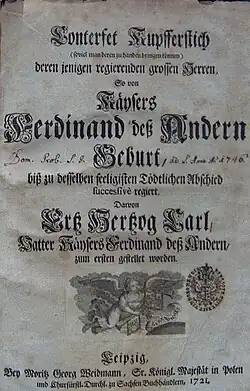 Conterfet Kupfferstich
(soviel man deren zu handen bringen können)
deren jenigen regierenden grossen Herren,
So von
Käysers
Ferdinand deß Andern
Geburt,
biß zu desselben seeligisten Tödtlichen Abschied
successivè regiert.
Darvon
Ertz Hertzog Carl,
Vatter Käysers Ferdinand deß Andern,
zum ersten gestellet worden.
Leipzig,
Bey Moritz Georg Weidmann, Sr. Königl. Majestät in Polen
und Churfürstl. Durchl. zu Sachsen Buchhändlern, 1721.